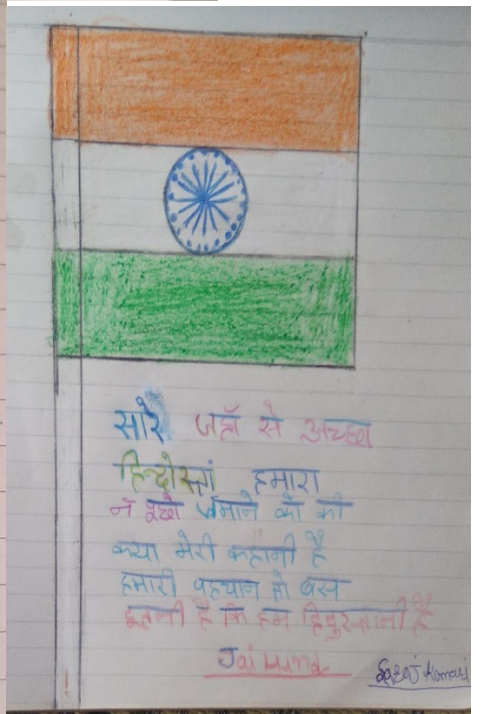 सारे जहाँ से अच्छा
हिन्दोस्तां हमारा
न पूछो ज़माने को की
क्या मेरी कहानी है
हमारी पहचान तो बस
इतनी है कि हम हिंदुस्तानी है
Jai Hind
Saroj Kumari